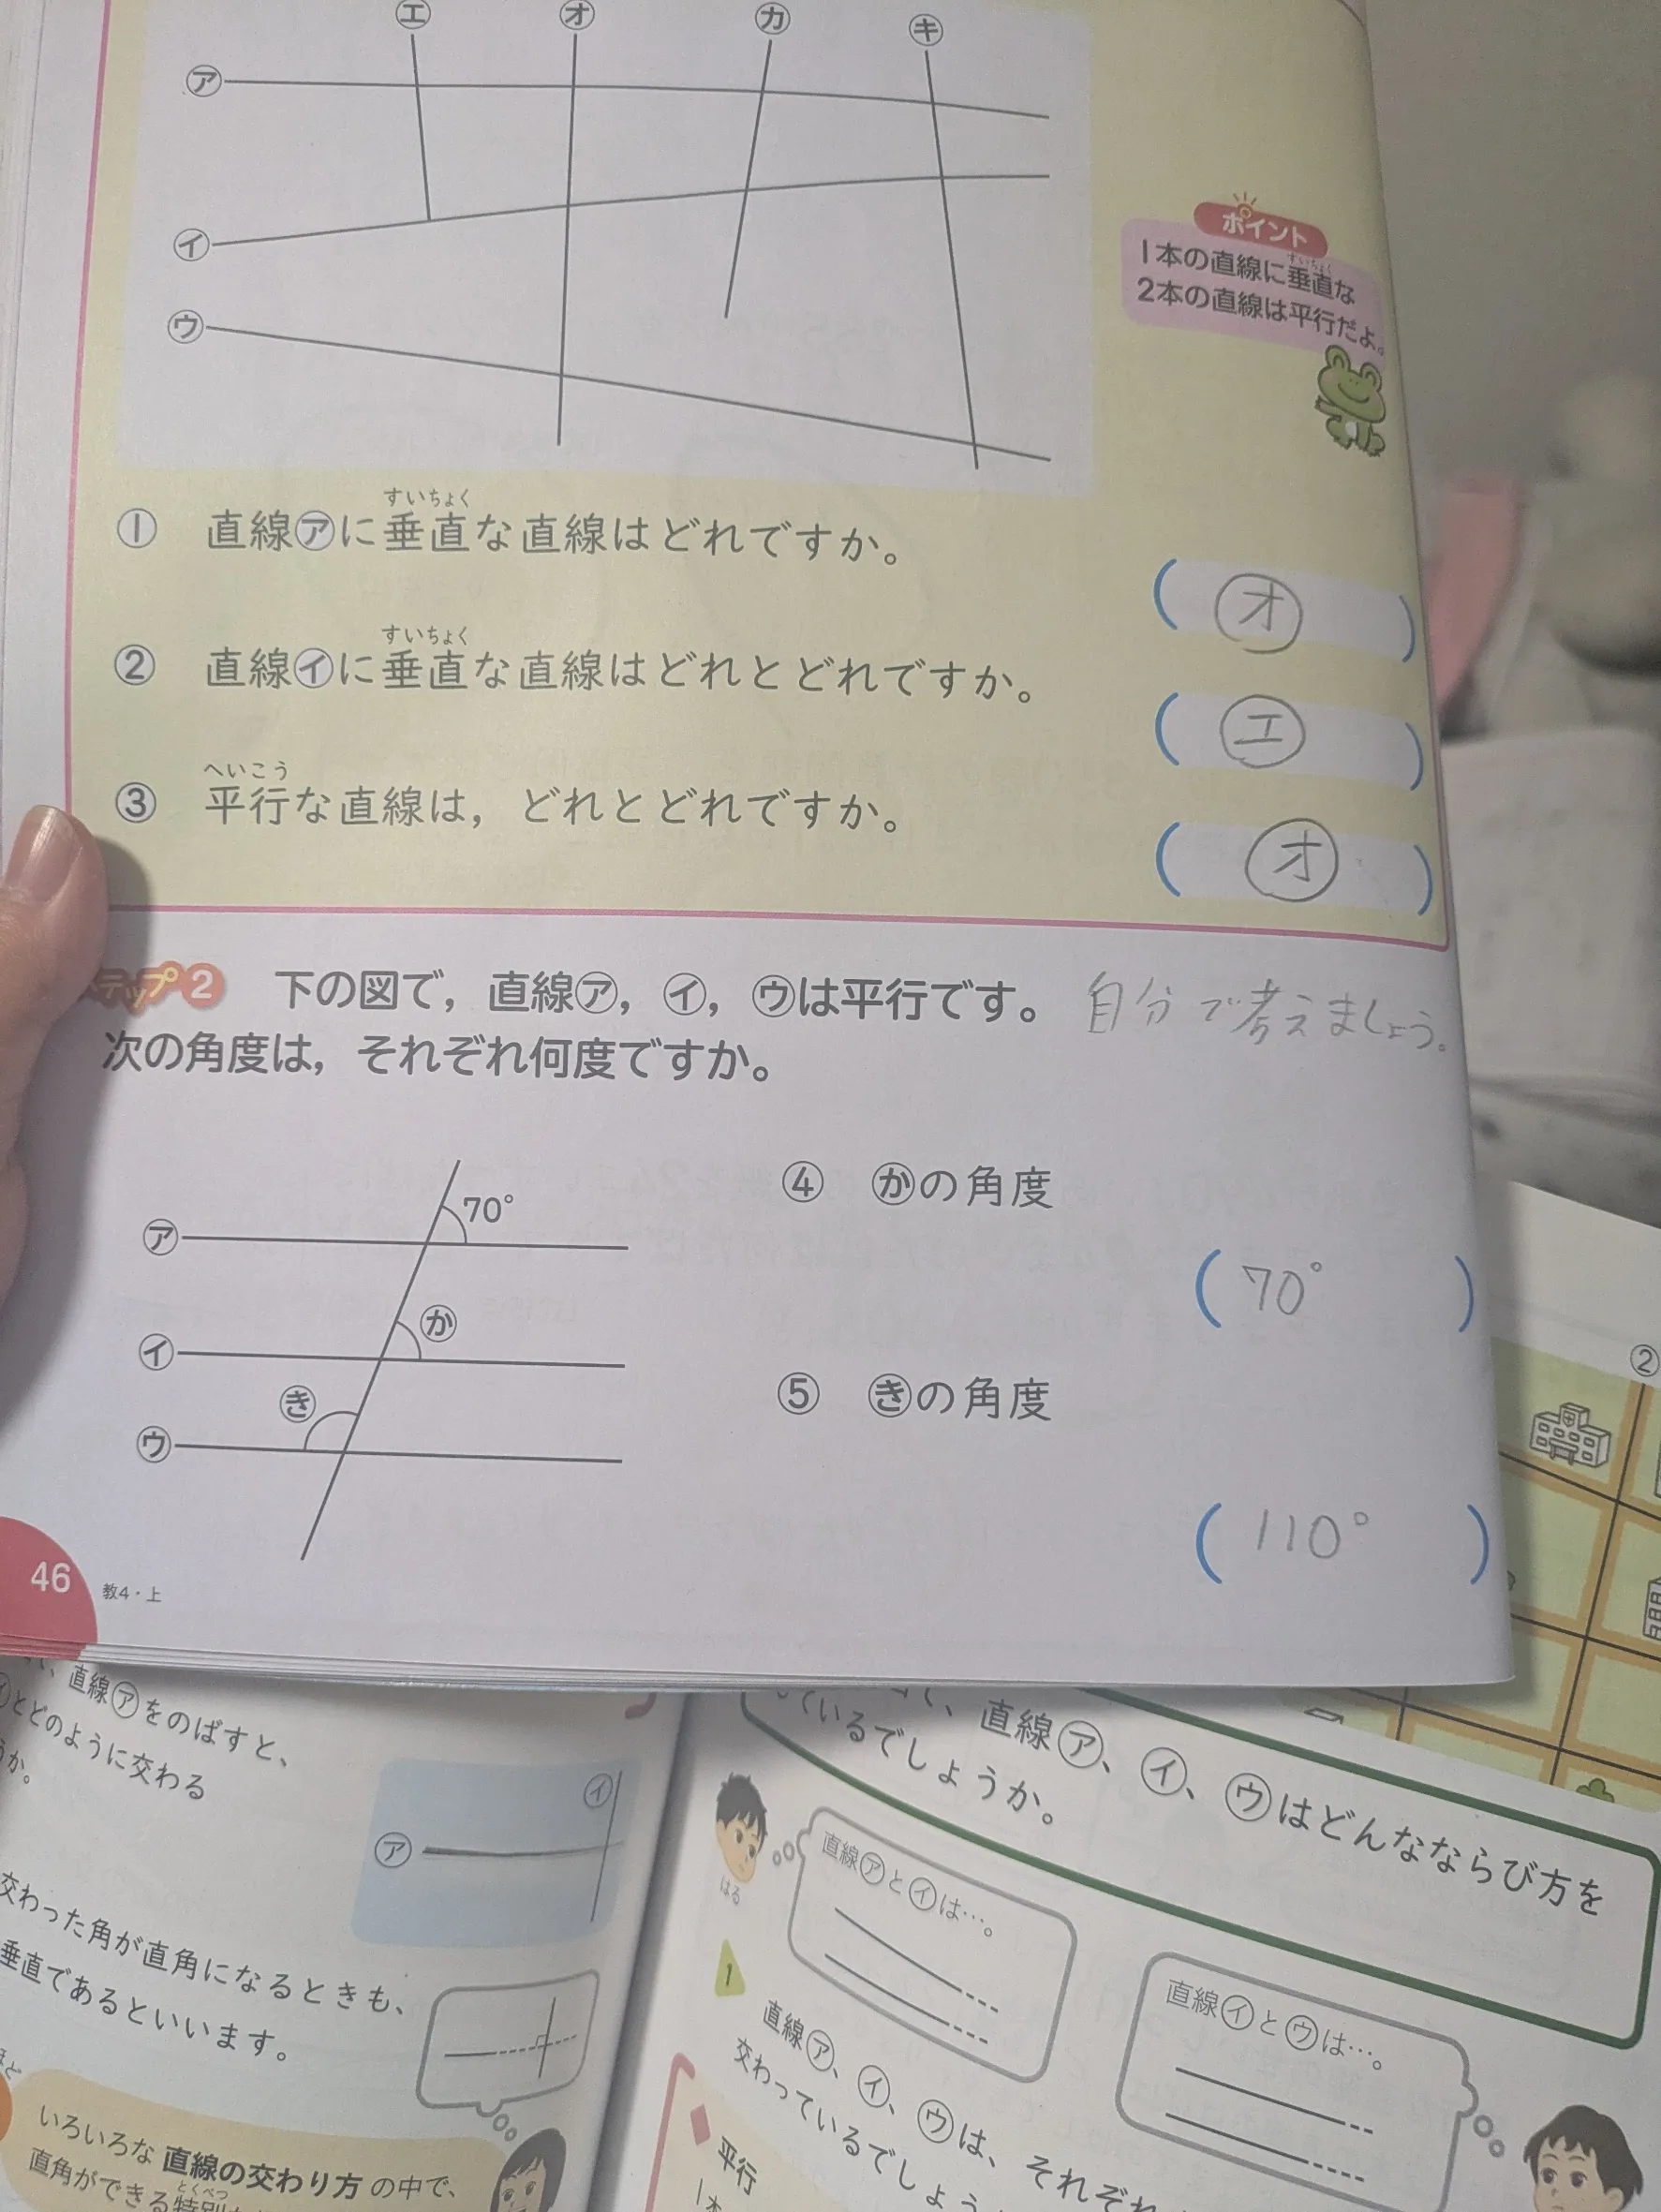 ㋓
㋔
㋕
㋖
㋐
㋑
㋒
ポイント
すいちょく
1本の直線に垂直な
2本の直線は平行だよ。
すいちょく
① 直線㋐に垂直な直線はどれですか。
(㋔)
すいちょく
② 直線㋑に垂直な直線はどれとどれですか。
(㋓)
へいこう
③ 平行な直線は，どれとどれですか。
(㋔)
テップ2 下の図で，直線㋐，㋑，㋒は平行です。 自分で考えましょう。
次の角度は，それぞれ何度ですか。
70°
㋐
か
㋑
き
㋒
④ かの角度
(70°)
⑤ きの角度
(110°)
46
教4・上
②
直線㋐をのばすと、
とどのように交わる
か。
㋑
㋐
交わった角が直角になるときも、
垂直であるといいます。
いろいろな 直線の交わり方 の中で、
とくべつ
直角ができる特別
直線㋐、㋑、㋒はどんなならび方を
ているでしょうか。
はる
直線㋐と㋑は…。
直線㋑と㋒は…。
1
直線㋐、㋑、㋒は、それぞれ
交わっているでしょう
平行
1本